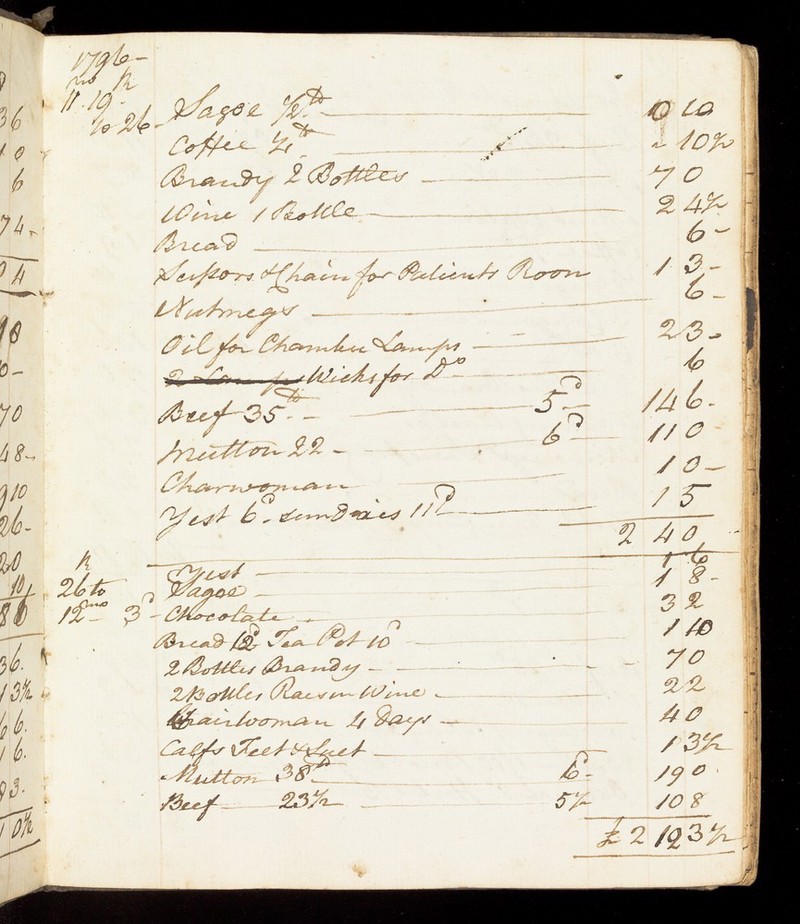 1796-
mo th
11 . 19 -
to 26 - Sagoe 1/2 lb 0 10
Coffee 1/4 lb - 10 1/2
Brandy 2 Bottles 7 0
Wine 1 Bottle 2 4 1/2
Bread 6 -
Scissors & Chain for Patients Room 1 3 -
Nutmegs 6 -
Oil for Chamber Lamps 2 3 -
Wicks for Do 6
Beef 35 lb - 5d 14 6 -
Mutton 22 - 6d 11 0
Charwoman 1 0 -
Yest 6d sundries 11d 1 5
2 4 0
Yest 1 6
th
26 to Sagoe 1 8 -
12 mo 3d - Chocolate 3 2
Bread 12d Tea Pot 10d 1 10
2 Bottles Brandy - 7 0
2 Bottles Raesin Wine - 2 2
Chairwoman 4 days - 4 0
Calfs Feet & Suet 1 3 1/2
Mutton 38 lb 6d - 19 0
Beef 23 1/2 5 1/2 10 8
£ 2 12 3 1/2
36
1 0
6
7 4 -
0 4
7 0
4 8 -
9 10
2 6 -
2 0
10
8 6
3 6 .
1 3 1/2
6 6 .
1 6 .
8 3 .
1 0 1/2